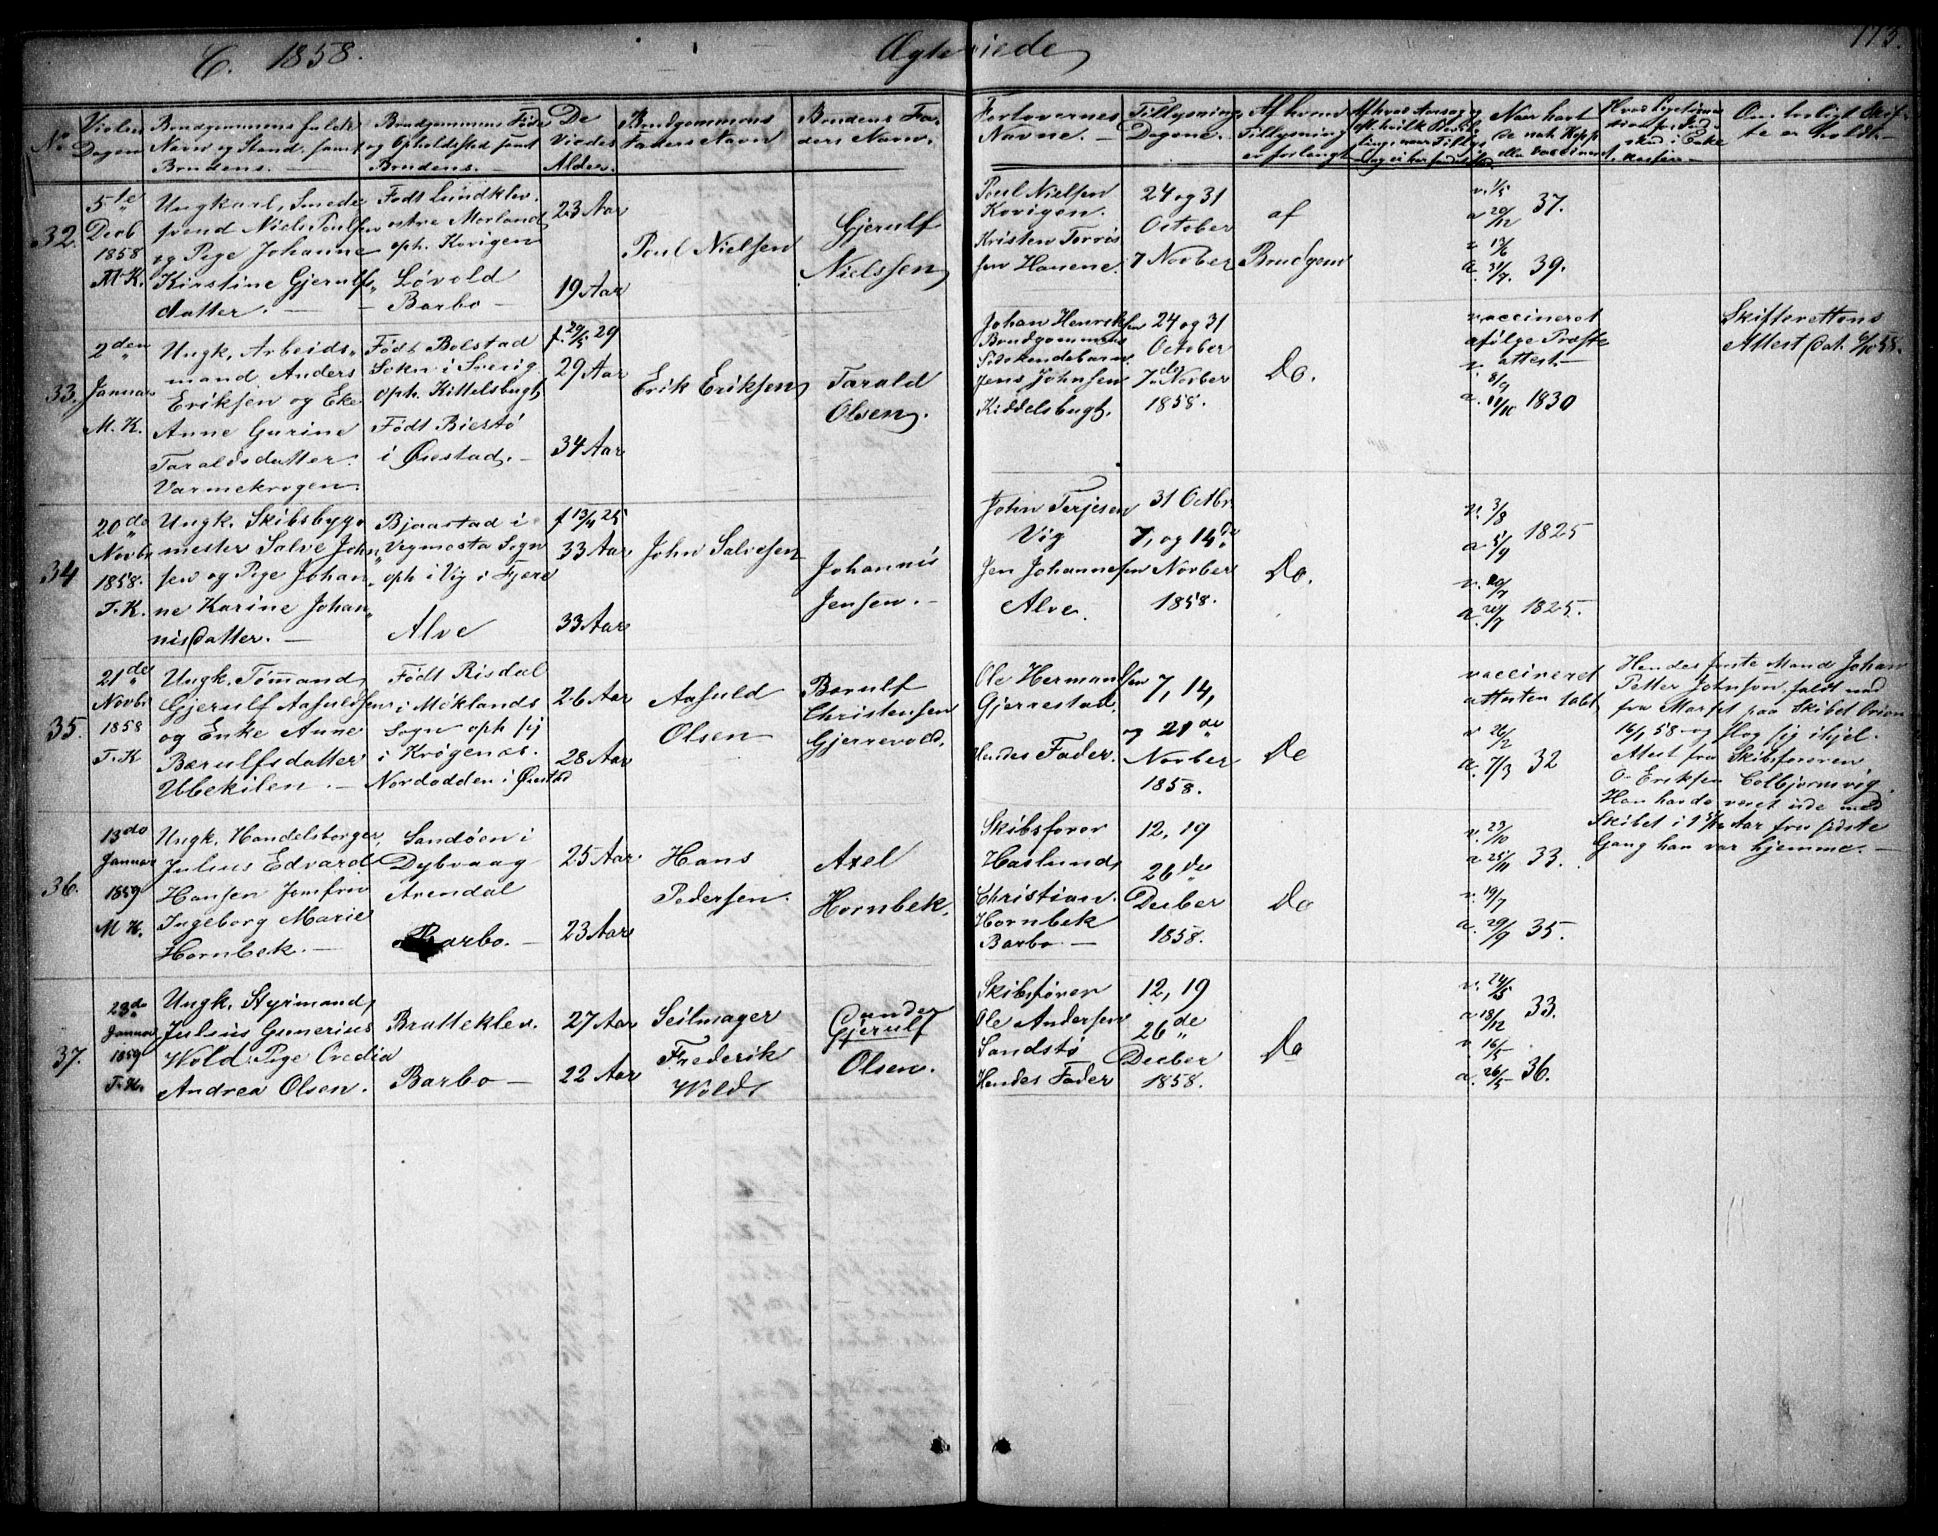 C. 1858.
Ægteviede
113.
No
Vielses
Dagen
Brudgommens fulde
Navn og Stand, samt
Brudens. —
Brudgommens Føde
og Opholdssted samt
Brudens. —
De
Viedes
Alder.
Brudgommens
Faders Navn
Brudens Fa-
ders Navn.
Forlovernes
Navne. —
Tillysnings
Dagene. —
Af hvem
Tillysning
er forlangt
Naar havt
de nat. Kopp.
eller vaccineret
Om lovligt Skif-
te er holdt. —
32.
5te
Decb
1858
M.K.
Ungkarl, Smede
svend Niels Poulsen
og Pige Johanne
Kirstine Gjerulfs
datter. —
Født Lundklev.
østre Moland
oph. Kovigen
Løvold
Barbo —
23 Aar
19 Aar
Poul Nielsen
Gjerulf
Nielssen
Poul Nielsen
Kovigen.
Kristen Torris
sen Hauene.
24 og 31
October
7 Novber
af
Brudgom
v. 1/5
a 20/12 37.
v. 13/6
a. 31/7. 39.
33.
2den
Januar
M. K.
Ungk. Arbeids-
mand Anders
Eriksen og Eke
Anne Gurine
Taraldsdatter.
Varmekrogen.
Født Bolstad
Sokn i Sverig
oph. Kittelsbugt
Født Biestø
i Øiestad. —
f. 29/5 29
29 Aar
34 Aar
Erik Eriksen
Tarald
Olsen.
Johan Henriksen
Brudgommens
Sødskendebarn
Jens Johnsen
Kiddelsbugt.
24 og 31
October
7de Novber
1858.
Do.
vaccineret
ifølge Præste
attest. —
v. 8/9
a. 11/10 1830
Skifterettens
Attest dat. 6/10 58.
34
20de
Novbr
1858.
T. K.
Ungk. Skibsbyg-
mester Salve John-
sen og Pige Johan-
ne Karine Johan-
nisdatter. —
Bjaastad i
Vegmosta Sogn
oph i Vig i Fjere
Alve
f 13/4 25
33 Aar
33 Aar
John Salvesen
Johannis
Jensen. —
John Terjesen
Vig
Jen Johannesen
Alve.
31 Octbr.
7, og 14de
Novber
1858.
Do.
v. 3/8
a 5/9 1825
v. 20/7
a. 20/7 1825.
35.
21de
Novbr
1858
T. K
Ungk. Tømmand
Gjerulf Aasulfsen
og Enke Anne
Bærulfsdatter
Ubbekilen. —
Født Risdal
i Moklands
Sogn oph sig
i Krøgenes.
Nordodden i Øiestad
26 Aar
28 Aar
Aasuld
Olsen
Barulf
Christensen
Gjerrevold.
Ole Hermansen
Gjerrestad.
Hendes Fader.
7, 14,
og 21de
Novber
1858.
Do
vaccineret
attesten tabt.
v 26/2
a. 7/3 32
Hendes første Mand Johan
Petter Johnson faldt ned
fra Marset paa Skibet Orion
16/1 58 og slog sig ihjel.
Attest fra Skibsføreren
O. Eriksen Colbjørnsvig.
Han havde været ude med
Skibet i Aar fra sidste
Gang han var hjemme. —
36.
13de
Januar
1859
M K.
Ungk. Handelsborger,
Julius Edvard
Hansen Jomfru
Ingeborg Marie
Hornbek. —
Sandøen i
Dybvaag
Arendal
Barbo. —
25 Aar
23 Aar
Hans
Pedersen.
Axel
Hornbek.
Skibsfører
Haslund,
Christian
Hornbek
Barbo —
12, 19
26de
Decber
1858.
Do
v. 23/10
a 25/11 33.
v. 19/7
a. 29/9 35.
37.
23de
Januar
1859
T. K.
Ungk. Styrmand,
Julius Gunerius
Wold. Pige Oredia
Andrea Olsen.
Bratteklev.
Barbo —
27 Aar
22 Aar
Seilmager
Frederik
Wold
Gunder
Gjerulf
Olsen.
Skibsfører
Ole Andersen
Sandstø
Hendes Fader
12, 19
26de
Decber
1858.
Do
v. 24/5
a 18/12 33.
v 16/5
a. 26/5 36.